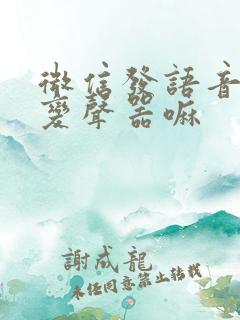 微信發語音
變聲器嘛
謝成龍
未经同意禁止转载